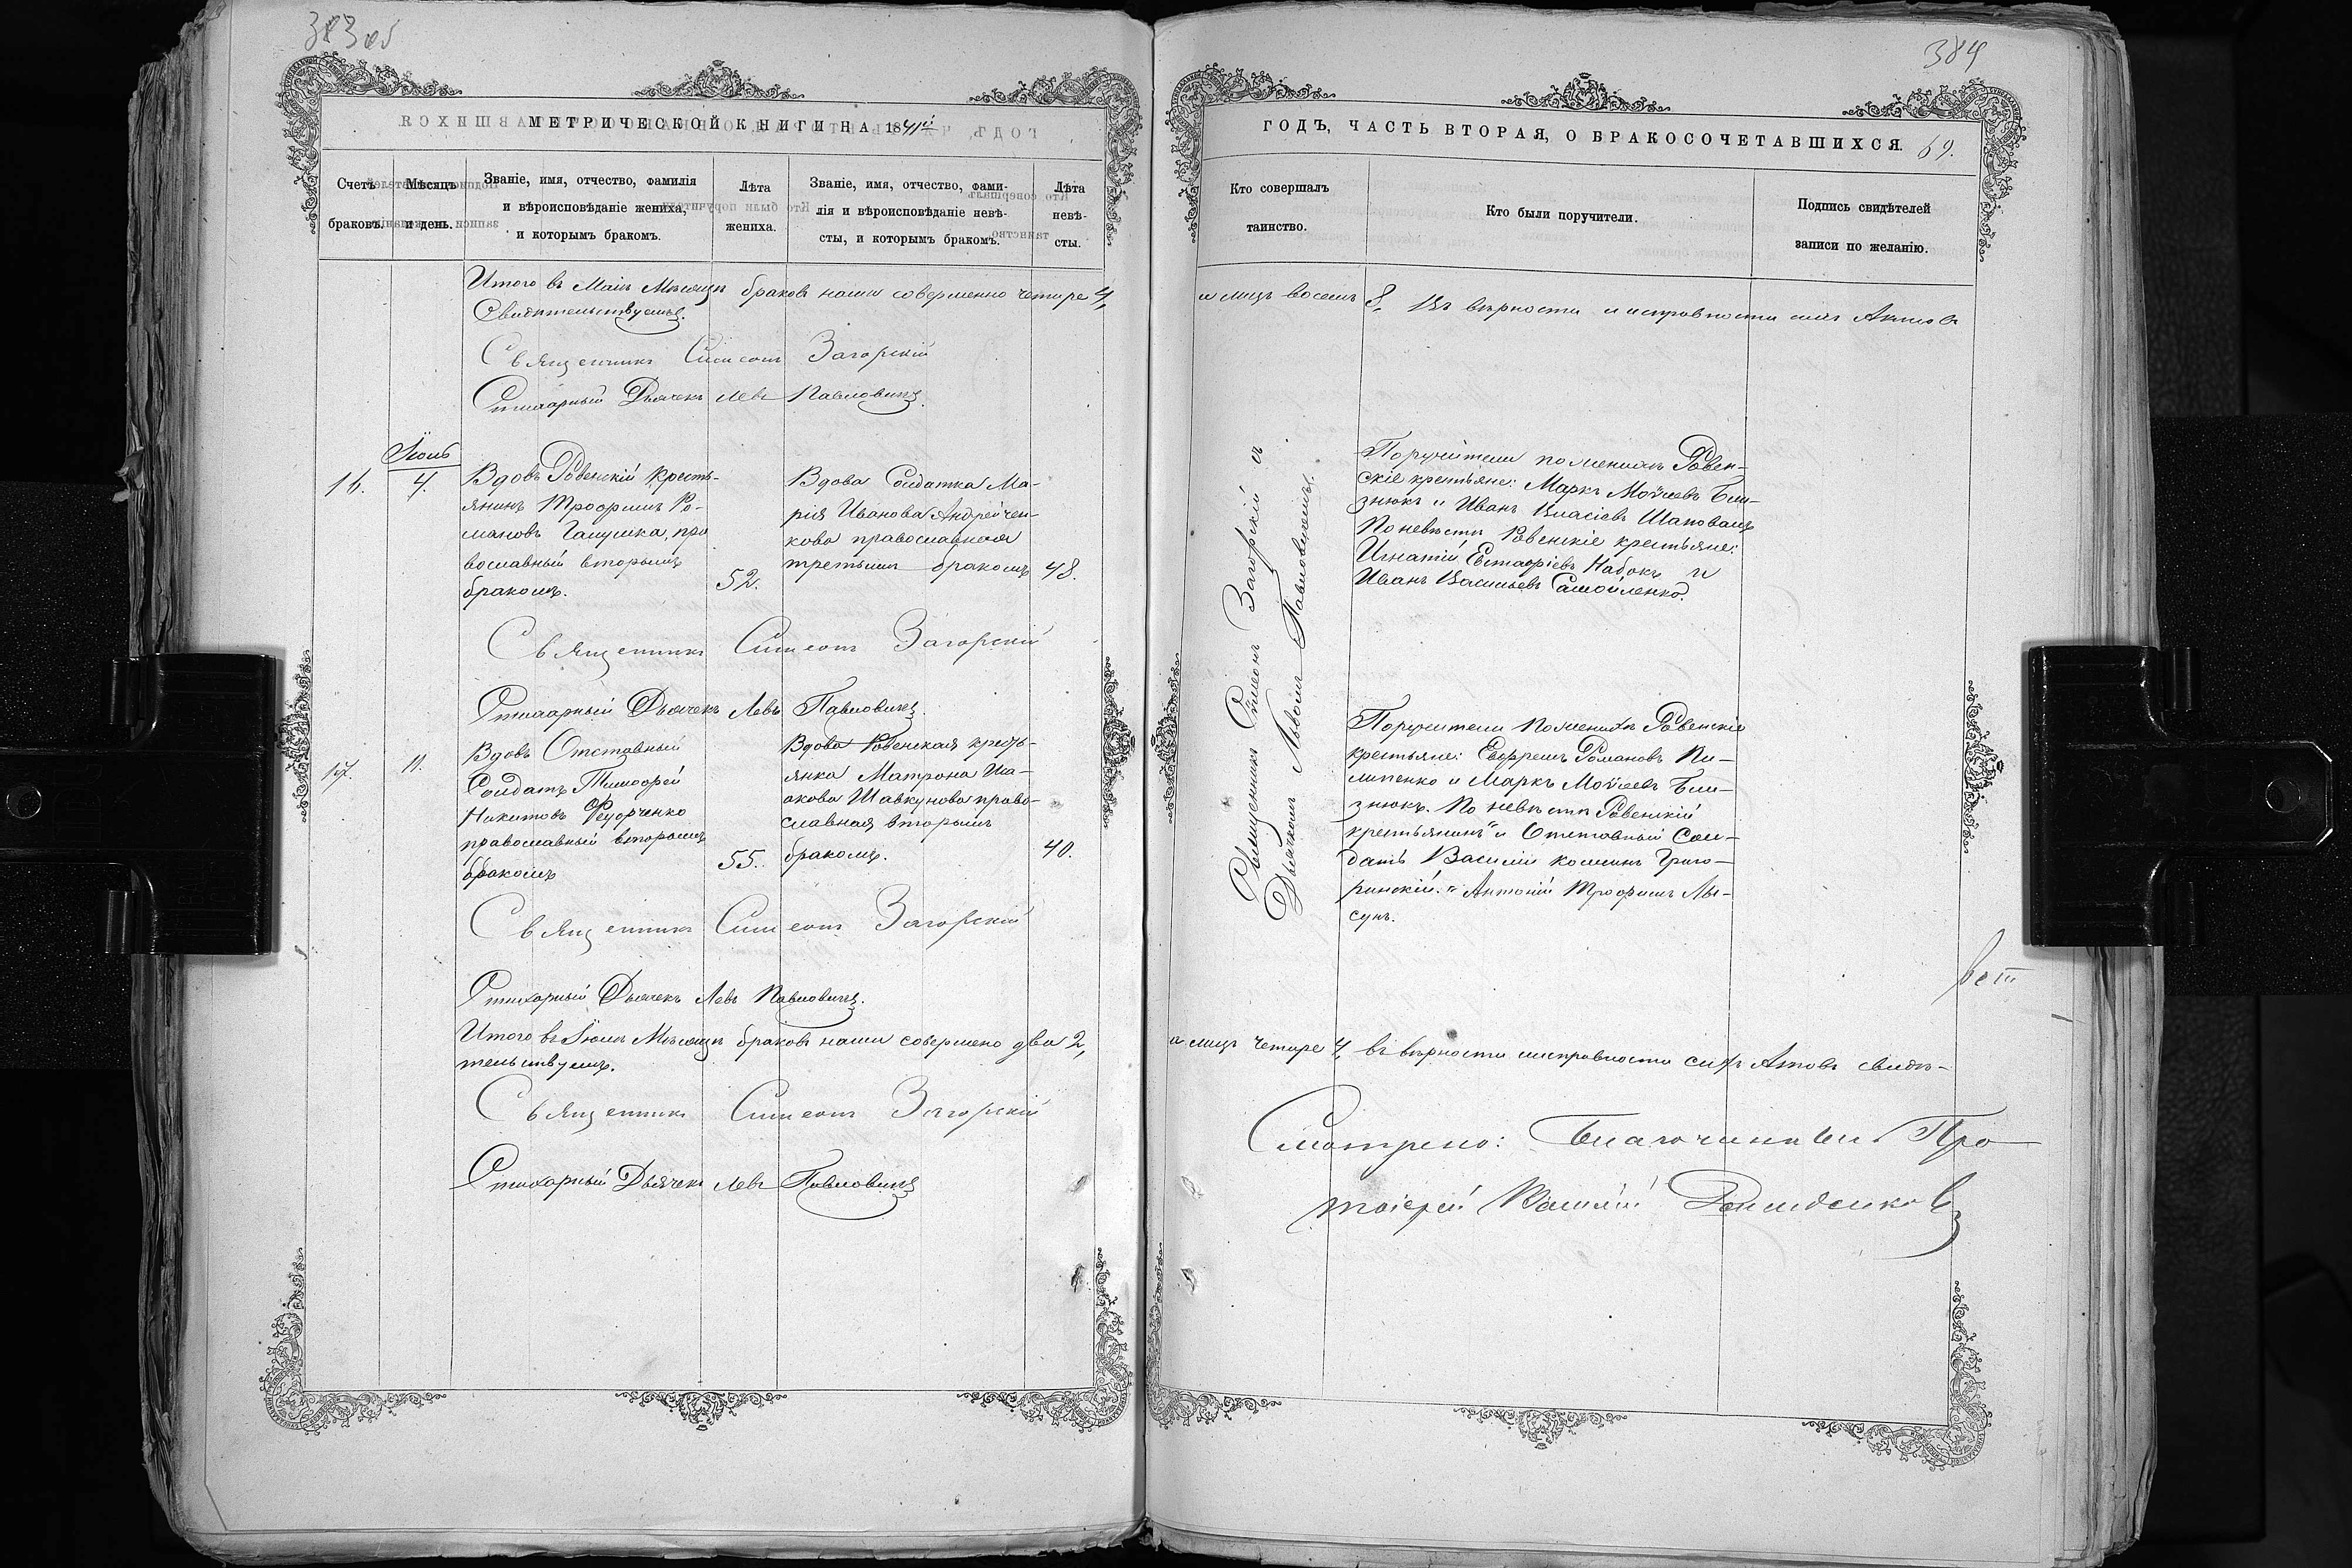 383 об
МЕТРИЧЕСКОЙ КНИГИ НА 1841й
Счетъ браковъ.
Мѣсяцъ и день.
Званіе, имя, отчество, фамилія
и вѣроисповѣданіе жениха,
и которымъ бракомъ.
Лѣта
жениха.
Званіе, имя, отчество, фами-
лія и вѣроисповѣданіе невѣ-
сты, и которымъ бракомъ.
Лѣта
невѣ-
сты.
Итого въ Маіи Мѣсяцѣ браковъ нами совершенно четыре 4,
Свидѣтельствуемъ.
Священникъ Симеонъ Загорскій
Стихарный Дьячекъ Левъ Павловичъ.
Іюнь
16.
4.
Вдовъ Ровенскій кресть-
янинъ Трофимъ Ро-
мановъ Галушка, пра
вославный вторымъ
бракомъ.
52.
Вдова Солдатка Ма-
рія Иванова Андрейчен-
кова православная
третьимъ бракомъ
48.
Священникъ Симеонъ Загорскій
Стихарный Дьячекъ Левъ Павловичъ.
17.
11.
Вдовъ Отставный
Солдатъ Тимофей
Никитовъ Федорченко
православный вторымъ
бракомъ
55.
Вдова Ровенская кресть-
янка Матрона Иа-
акова Шавкунова право-
славная вторымъ
бракомъ.
40.
Священникъ Симеонъ Загорскій
Стихарный Дьячекъ Левъ Павловичъ.
Итого въ Іюнѣ Мѣсяцѣ браковъ нами совершено два 2,
тельствуемъ.
Священникъ Симеонъ Загорскій
Стихарный Дьячекъ Левъ Павловичъ
384
ГОДЪ, ЧАСТЬ ВТОРАЯ, О БРАКОСОЧЕТАВШИХСЯ.
69.
Кто совершалъ
таинство.
Кто были поручители.
Подпись свидѣтелей
записи по желанію.
а лицъ восемъ 8, Въ вѣрности и исправности сихъ Актовъ
Священникъ Симеонъ Загорскій съ
Дьячкомъ Львомъ Павловичемъ.
Поручители по женихѣ Ровен-
скіе крестьяне: Маркъ Мойсеевъ Бли-
знюкъ и Иванъ Власіевъ Шаповалъ
По невѣстѣ Ровенскіе крестьяне:
Игнатій Евстафіевъ Набокъ и
Иванъ Васильевъ Самойленко.
Поручители по женихѣ Ровенскіе
крестьяне: Ефремъ Романовъ Пи-
липенко и Маркъ Мойсеевъ Бли-
знюкъ. По невѣстѣ Ровенскій
крестьянинъ и Отставный Сол-
датъ Василій Григо-
ринскій. и Антоній Трофимъ Лы-
сунъ.
а лицъ четыре 4, въ вѣрности и исправности сихъ Актовъ свидѣ-
Смотрено: Благочинный Про
тоіерей Василій